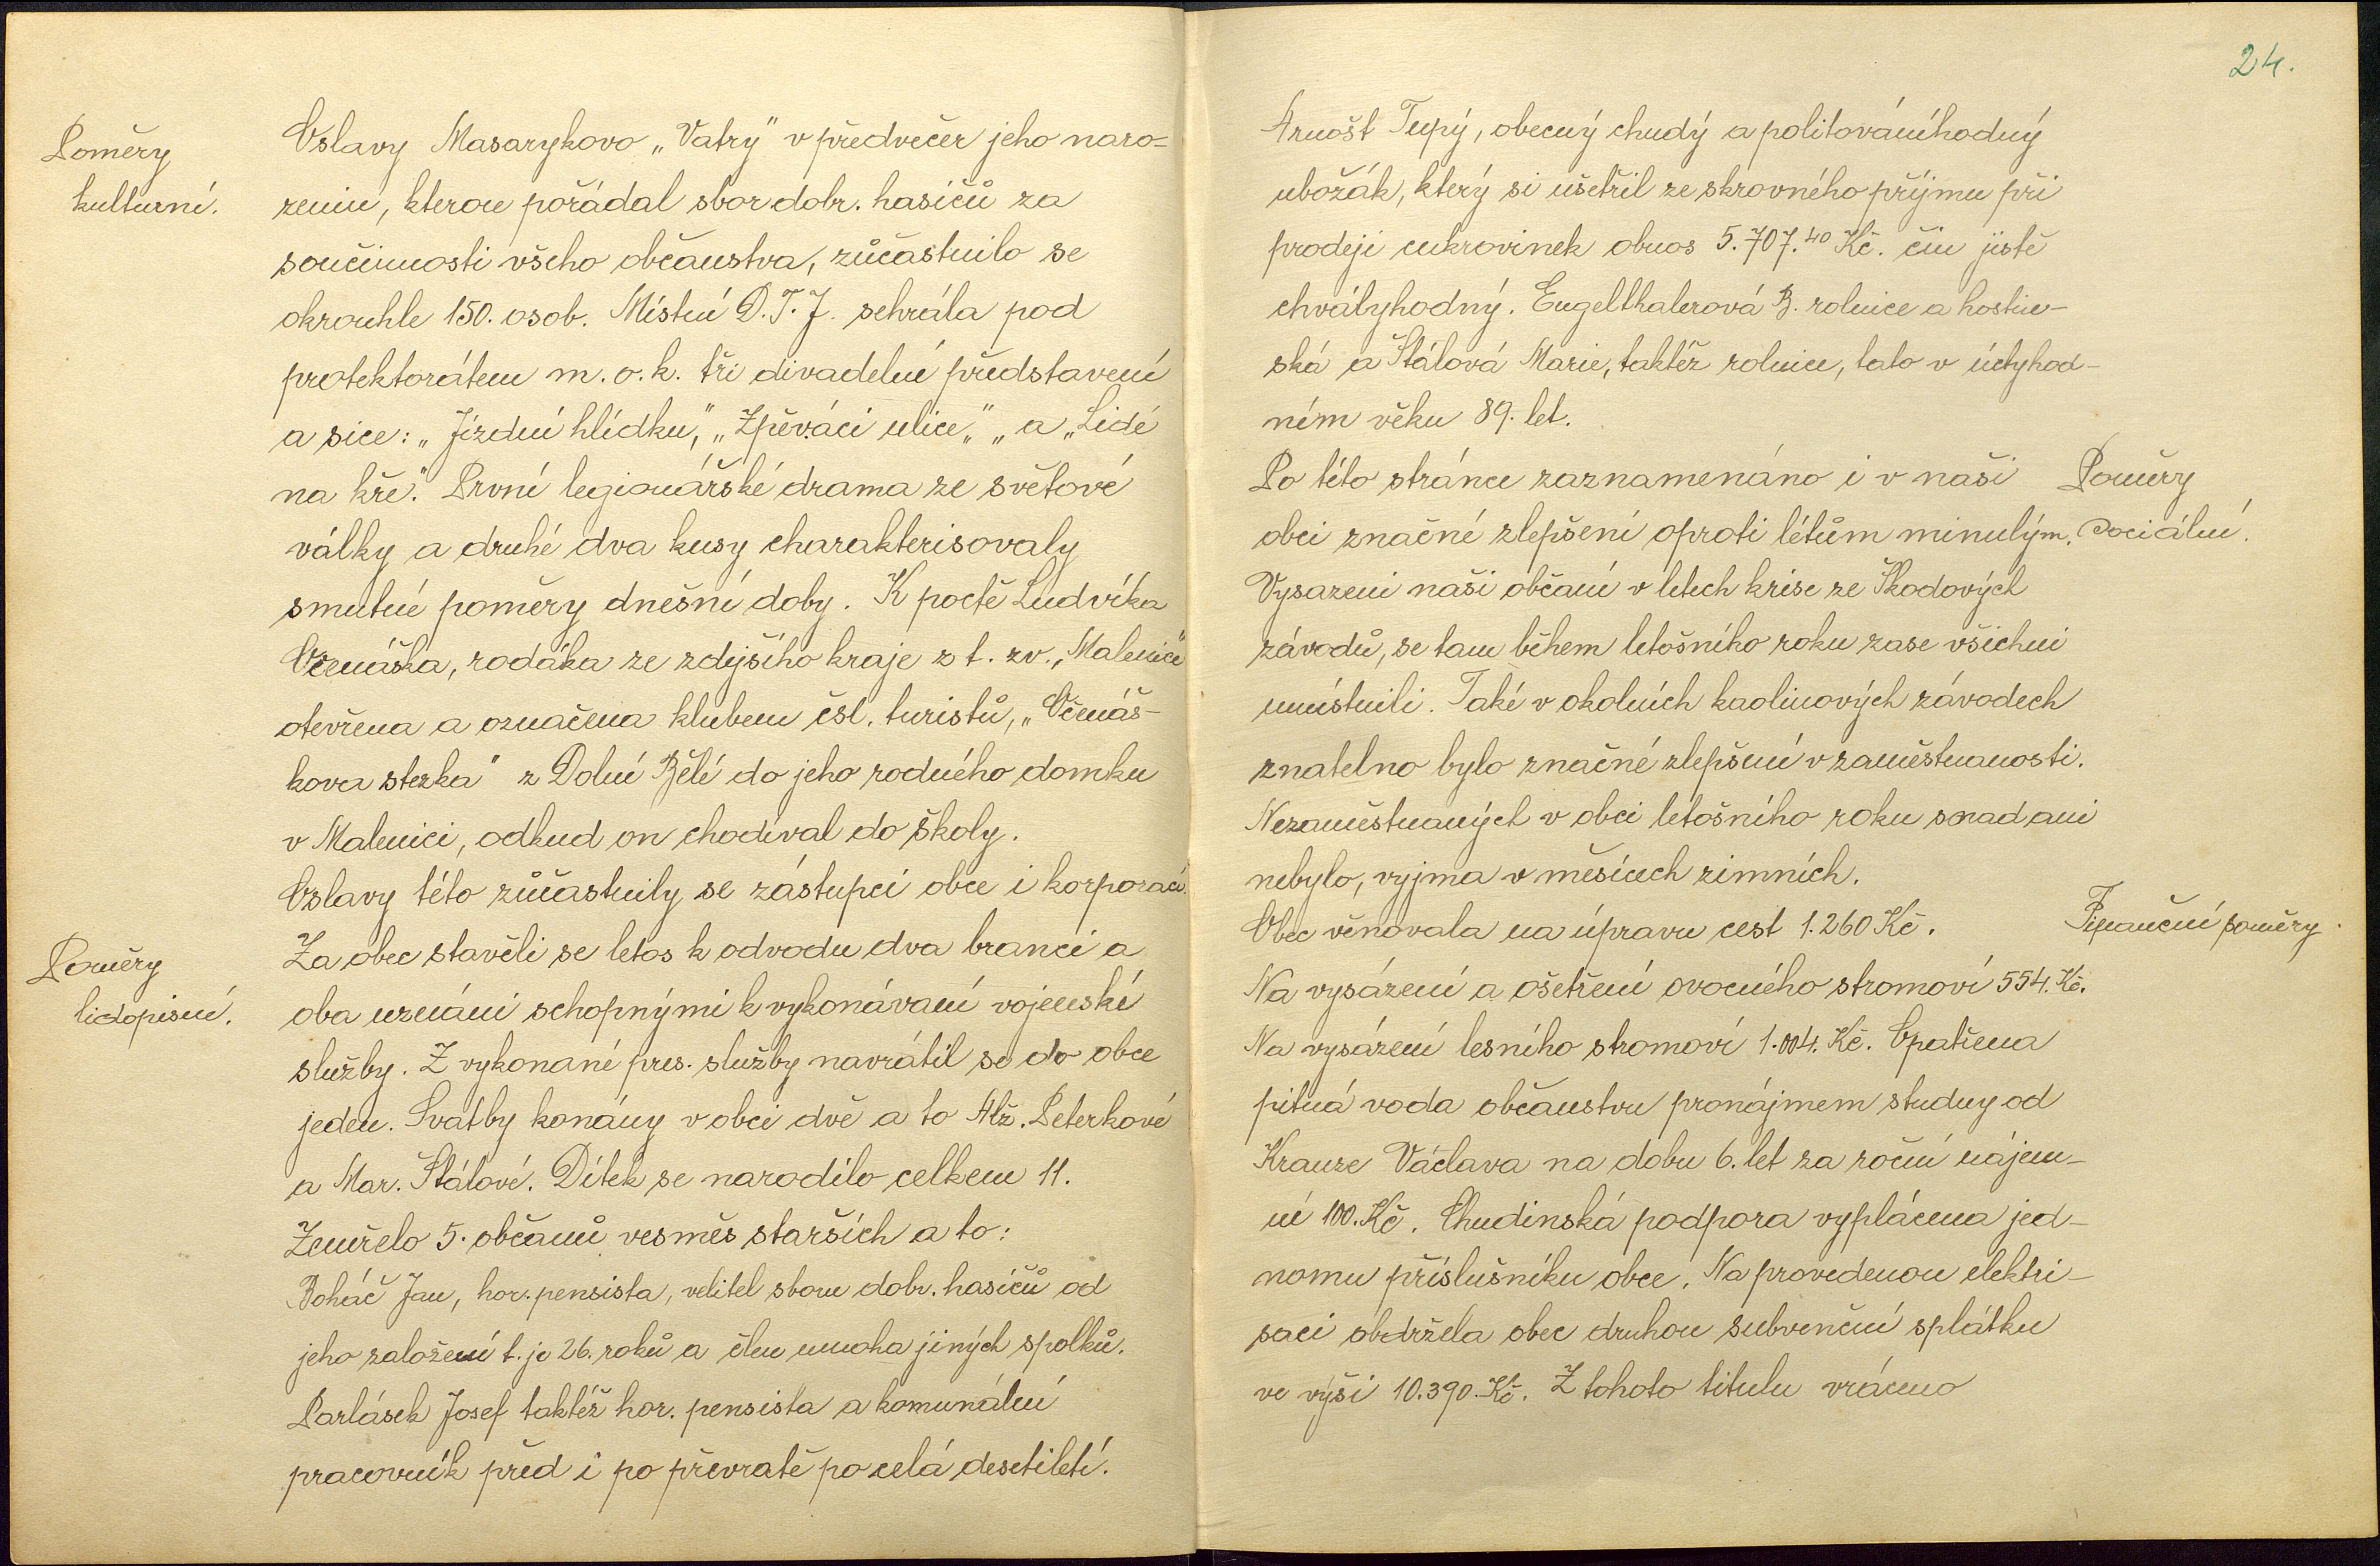 Poměry
kulturní.
Oslavy Masarykovo „Vatry" v předvečer jeho naro=
zenin, kterou pořádal sbor dobr. hasičů za
součinnosti všeho občanstva, zůčastnilo se
okrouhle 150. osob. Místní D.T.J. sehrála pod
protektorátem m.o.k. tři divadelní představení
a sice: „Jízdní hlídku," „Zpěváci ulice„ „ a „Lidé
na kře." První legionářské drama ze světové
války a druhé dva kusy charakterisovaly
smutné poměry dnešní doby. K poctě Ludvíka
Očenáška, rodáka ze zdejšího kraje z t. zv. „Malenice"
otevřena a označena klubem čsl. turistů, „Očenáš-
kova stezka" z Dolní Bělé do jeho rodného domku
v Malenici, odkud on chodíval do školy.
Oslavy této zůčastnily se zástupci obce i korporací.
Poměry
lidopisné.
Za obec stavěli se letos k odvodu dva branci a
oba uznáni schopnými k vykonávaní vojenské
služby. Z vykonané pres. služby navrátil se do obce
jeden. Svatby konány v obci dvě a to Alž. Peterkové
a Mar. Štálové. Dítek se narodilo celkem 11.
Zemřelo 5. občanů vesměs starších a to:
Boháč Jan, hor. pensista, velitel sboru dobr. hasičů od
jeho založení t. je 26. roků a člen mnoha jiných spolků.
Parlásek Josef taktéž hor. pensista a komunální
pracovník před i po převratě po celá desetiletí.
24.
Arnošt Tupý, obecný chudý a politováníhodný
ubožák, který si ušetřil ze skrovného příjmu při
prodeji cukrovinek obnos 5.707.40 Kč. čin jistě
chvályhodný. Engelthalerová B. rolnice a hostin-
ská a Štálová Marie, taktéž rolnice, tato v úctyhod-
ném věku 89. let.
Poměry
sociální.
Po této stránce zaznamenáno i v naši
obci značné zlepšení oproti létům minulým.
Vysazeni naši občaní v letech krise ze Škodových
závodů, se tam během letošního roku zase všichni
umístnili. Také v okolních kaolinových závodech
znatelno bylo značné zlepšení v zaměstnanosti.
Nezaměstnaných v obci letošního roku snad ani
nebylo, vyjma v měsících zimních.
Finanční poměry.
Obec věnovala na úpravu cest 1.260 Kč.
Na vysázení a ošetření ovocného stromoví 554. Kč.
Na vysázení lesního stromoví 1.004. Kč. Opatřena
pitná voda občanstvu pronájmem studny od
Krauze Václava na dobu 6. let za roční nájem-
né 100. Kč. Chudinská podpora vyplácena jed-
nomu příslušníku obce. Na provedenou elektri-
saci obdržela obec druhou subvenční splátku
ve výši 10.390. Kč. Z tohoto titulu vráceno